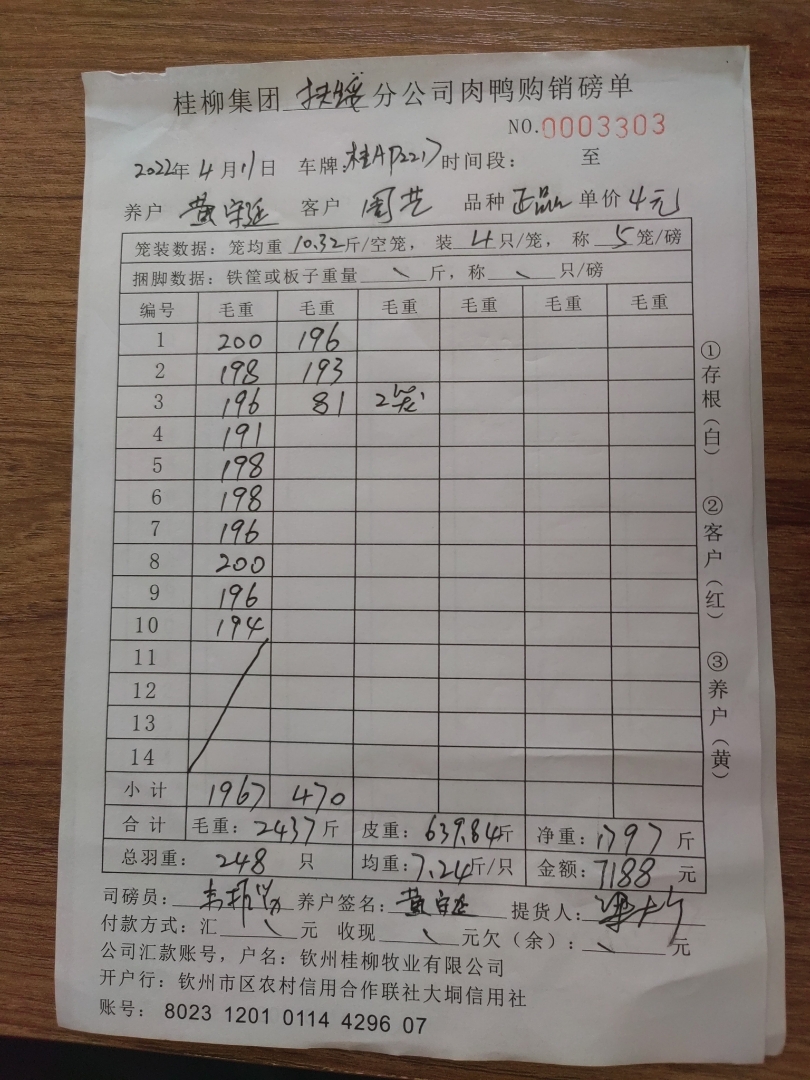 桂柳集团 扶绥 分公司肉鸭购销磅单
NO.0003303
2022年4月11日 车牌: 时间段: 至
养户 黄宗延 客户 周艺 品种 正品 单价 4元
笼装数据: 笼均重 10.32 斤/空笼, 装 4 只/笼, 称 5 笼/磅
捆脚数据: 铁筐或板子重量 \ 斤, 称 \ 只/磅
编号 毛重 毛重 毛重 毛重 毛重 毛重
1 200 196
2 198 193
3 196 81 2笼
4 191
5 198
6 198
7 196
8 200
9 196
10 194
11
12
13
14
小计 1967 470
合计 毛重: 2437 斤 皮重: 639.84斤 净重: 1797 斤
总羽重: 248 只 均重: 7.24斤/只 金额: 7188 元
司磅员: 养户签名: 黄宗延 提货人:
付款方式: 汇 \ 元 收现 \ 元欠(余): \ 元
公司汇款账号, 户名: 钦州桂柳牧业有限公司
开户行: 钦州市区农村信用合作联社大垌信用社
账号: 8023 1201 0114 4296 07
①存根(白)
②客户(红)
③养户(黄)